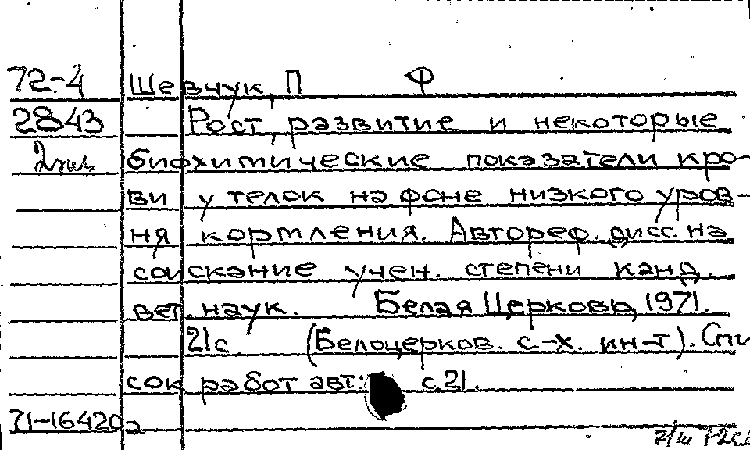 72-4 Шевчук, П Ф
2843 Рост, развитие и некоторые
биохимические показатели кро-
ви у телок на фоне низкого уров-
ня кормления. Автореф. дисс. на
соискание учен. степени канд.
вет. наук. Белая Церковь, 1971.
21с. (Белоцерков. с-х. ин-т). Спи
сок работ авт: с.21.
71-16420а